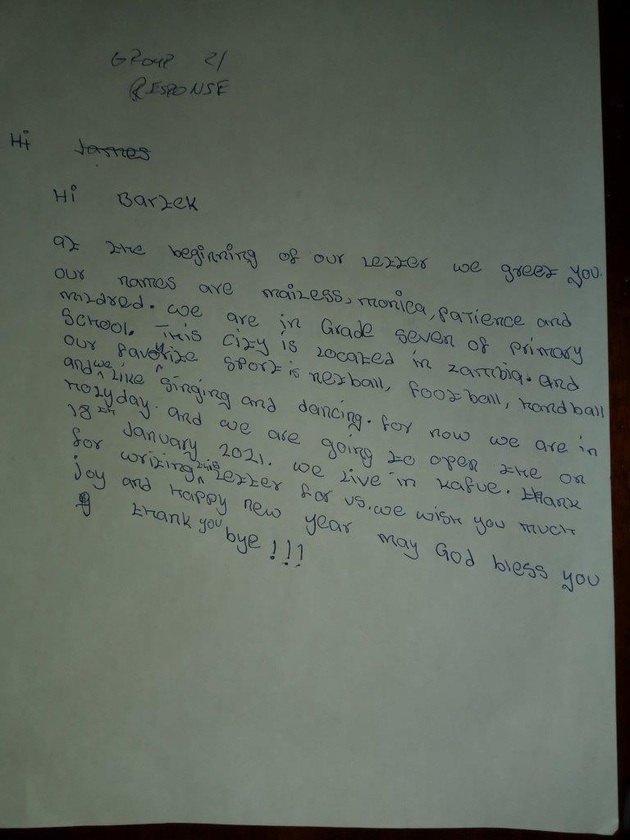 GROUP 21
RESPONSE
Hi James
Hi Bartek
at the beginning of our letter we greet you.
our names are mailess, monica, patience and
mildred. we are in Grade seven of primary
School. This city is located in zambia. and
our favorite sport is netball, football, handball
and we like singing and dancing. for now we are in
holyday. and we are going to open the on
18th January 2021. we live in kafue. thank
for writing this letter for us. we wish you much
joy and Happy new year may God bless you
thank you bye!!!